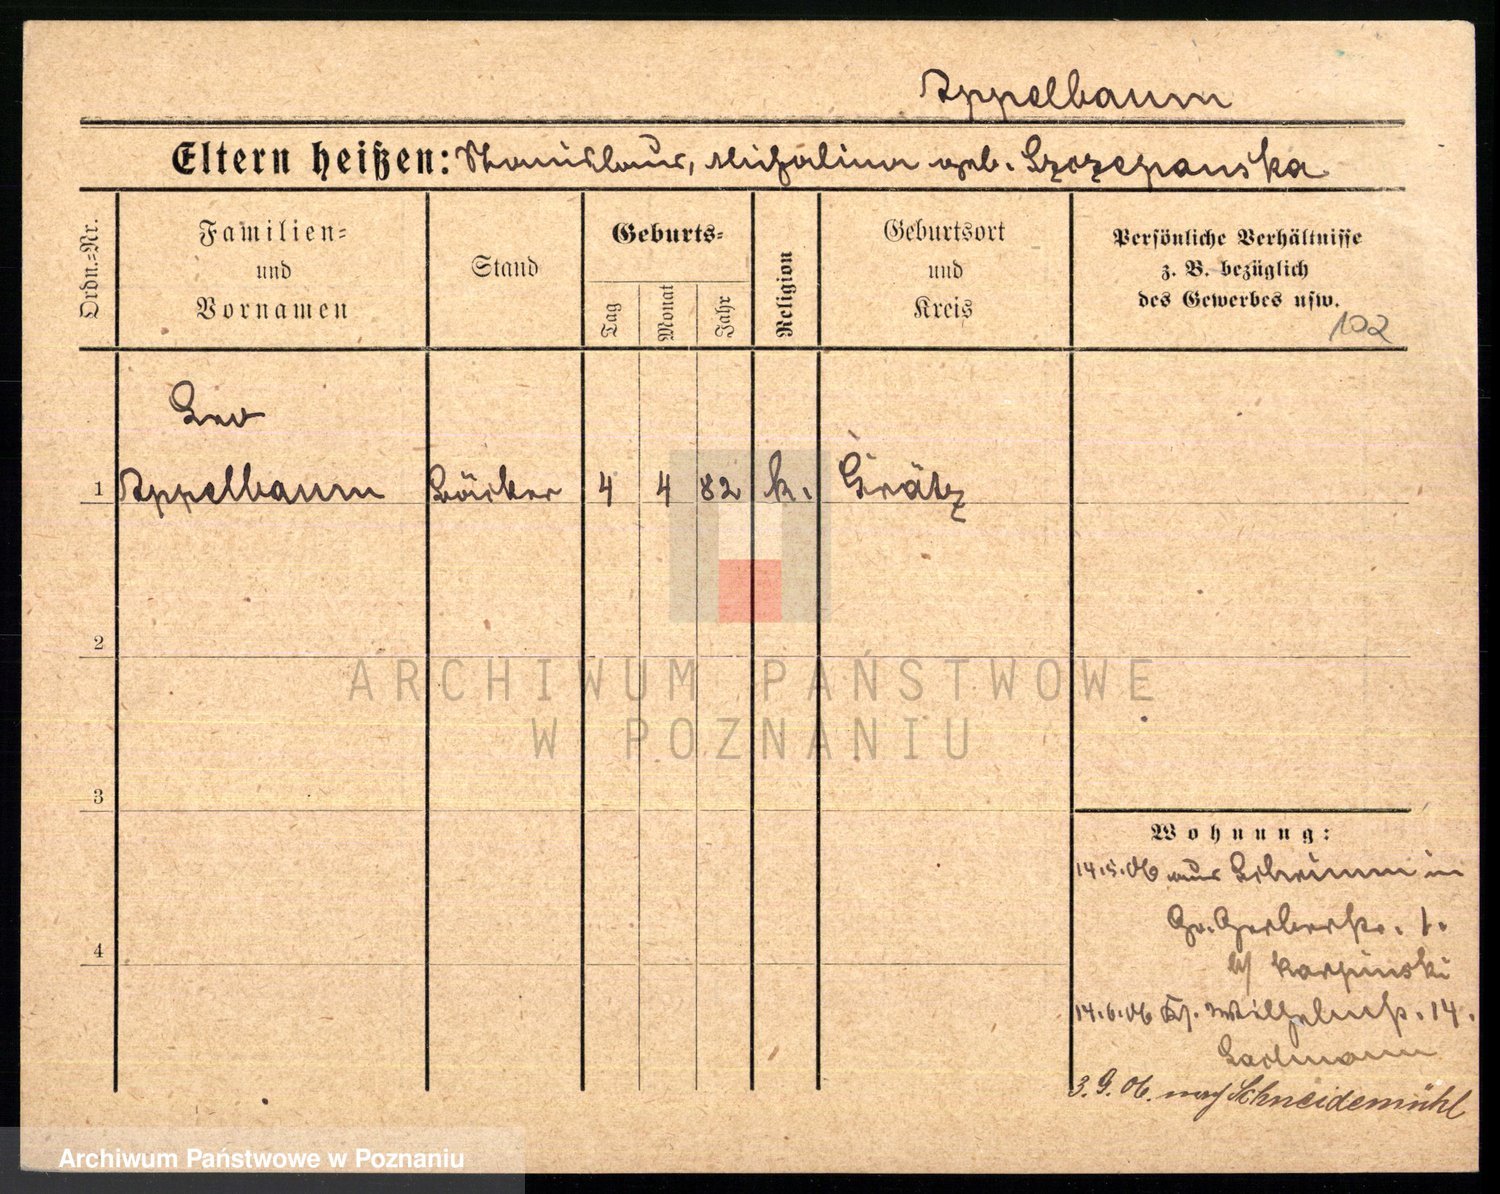 Appelbaum
Eltern heißen: Stanislaus, Michalina geb. Szczepanska
Ordn.-Nr.
Familien-
und
Vornamen
Stand
Geburts-
Tag
Monat
Jahr
Religion
Geburtsort
und
Kreis
Persönliche Verhältnisse
z. B. bezüglich
des Gewerbes usw.
102
Leo
1 Appelbaum Bäcker 4 4 82 k. Grätz
2
3
4
Wohnung:
14.5.06 aus Schrimm in
Gr. Gerberstr. 1.
b/ Karpinski
14.6.06 Wilhelmstr. 14.
3.9.06. nach Schneidemühl
ARCHIWUM PAŃSTWOWE
W POZNANIU
Archiwum Państwowe w Poznaniu